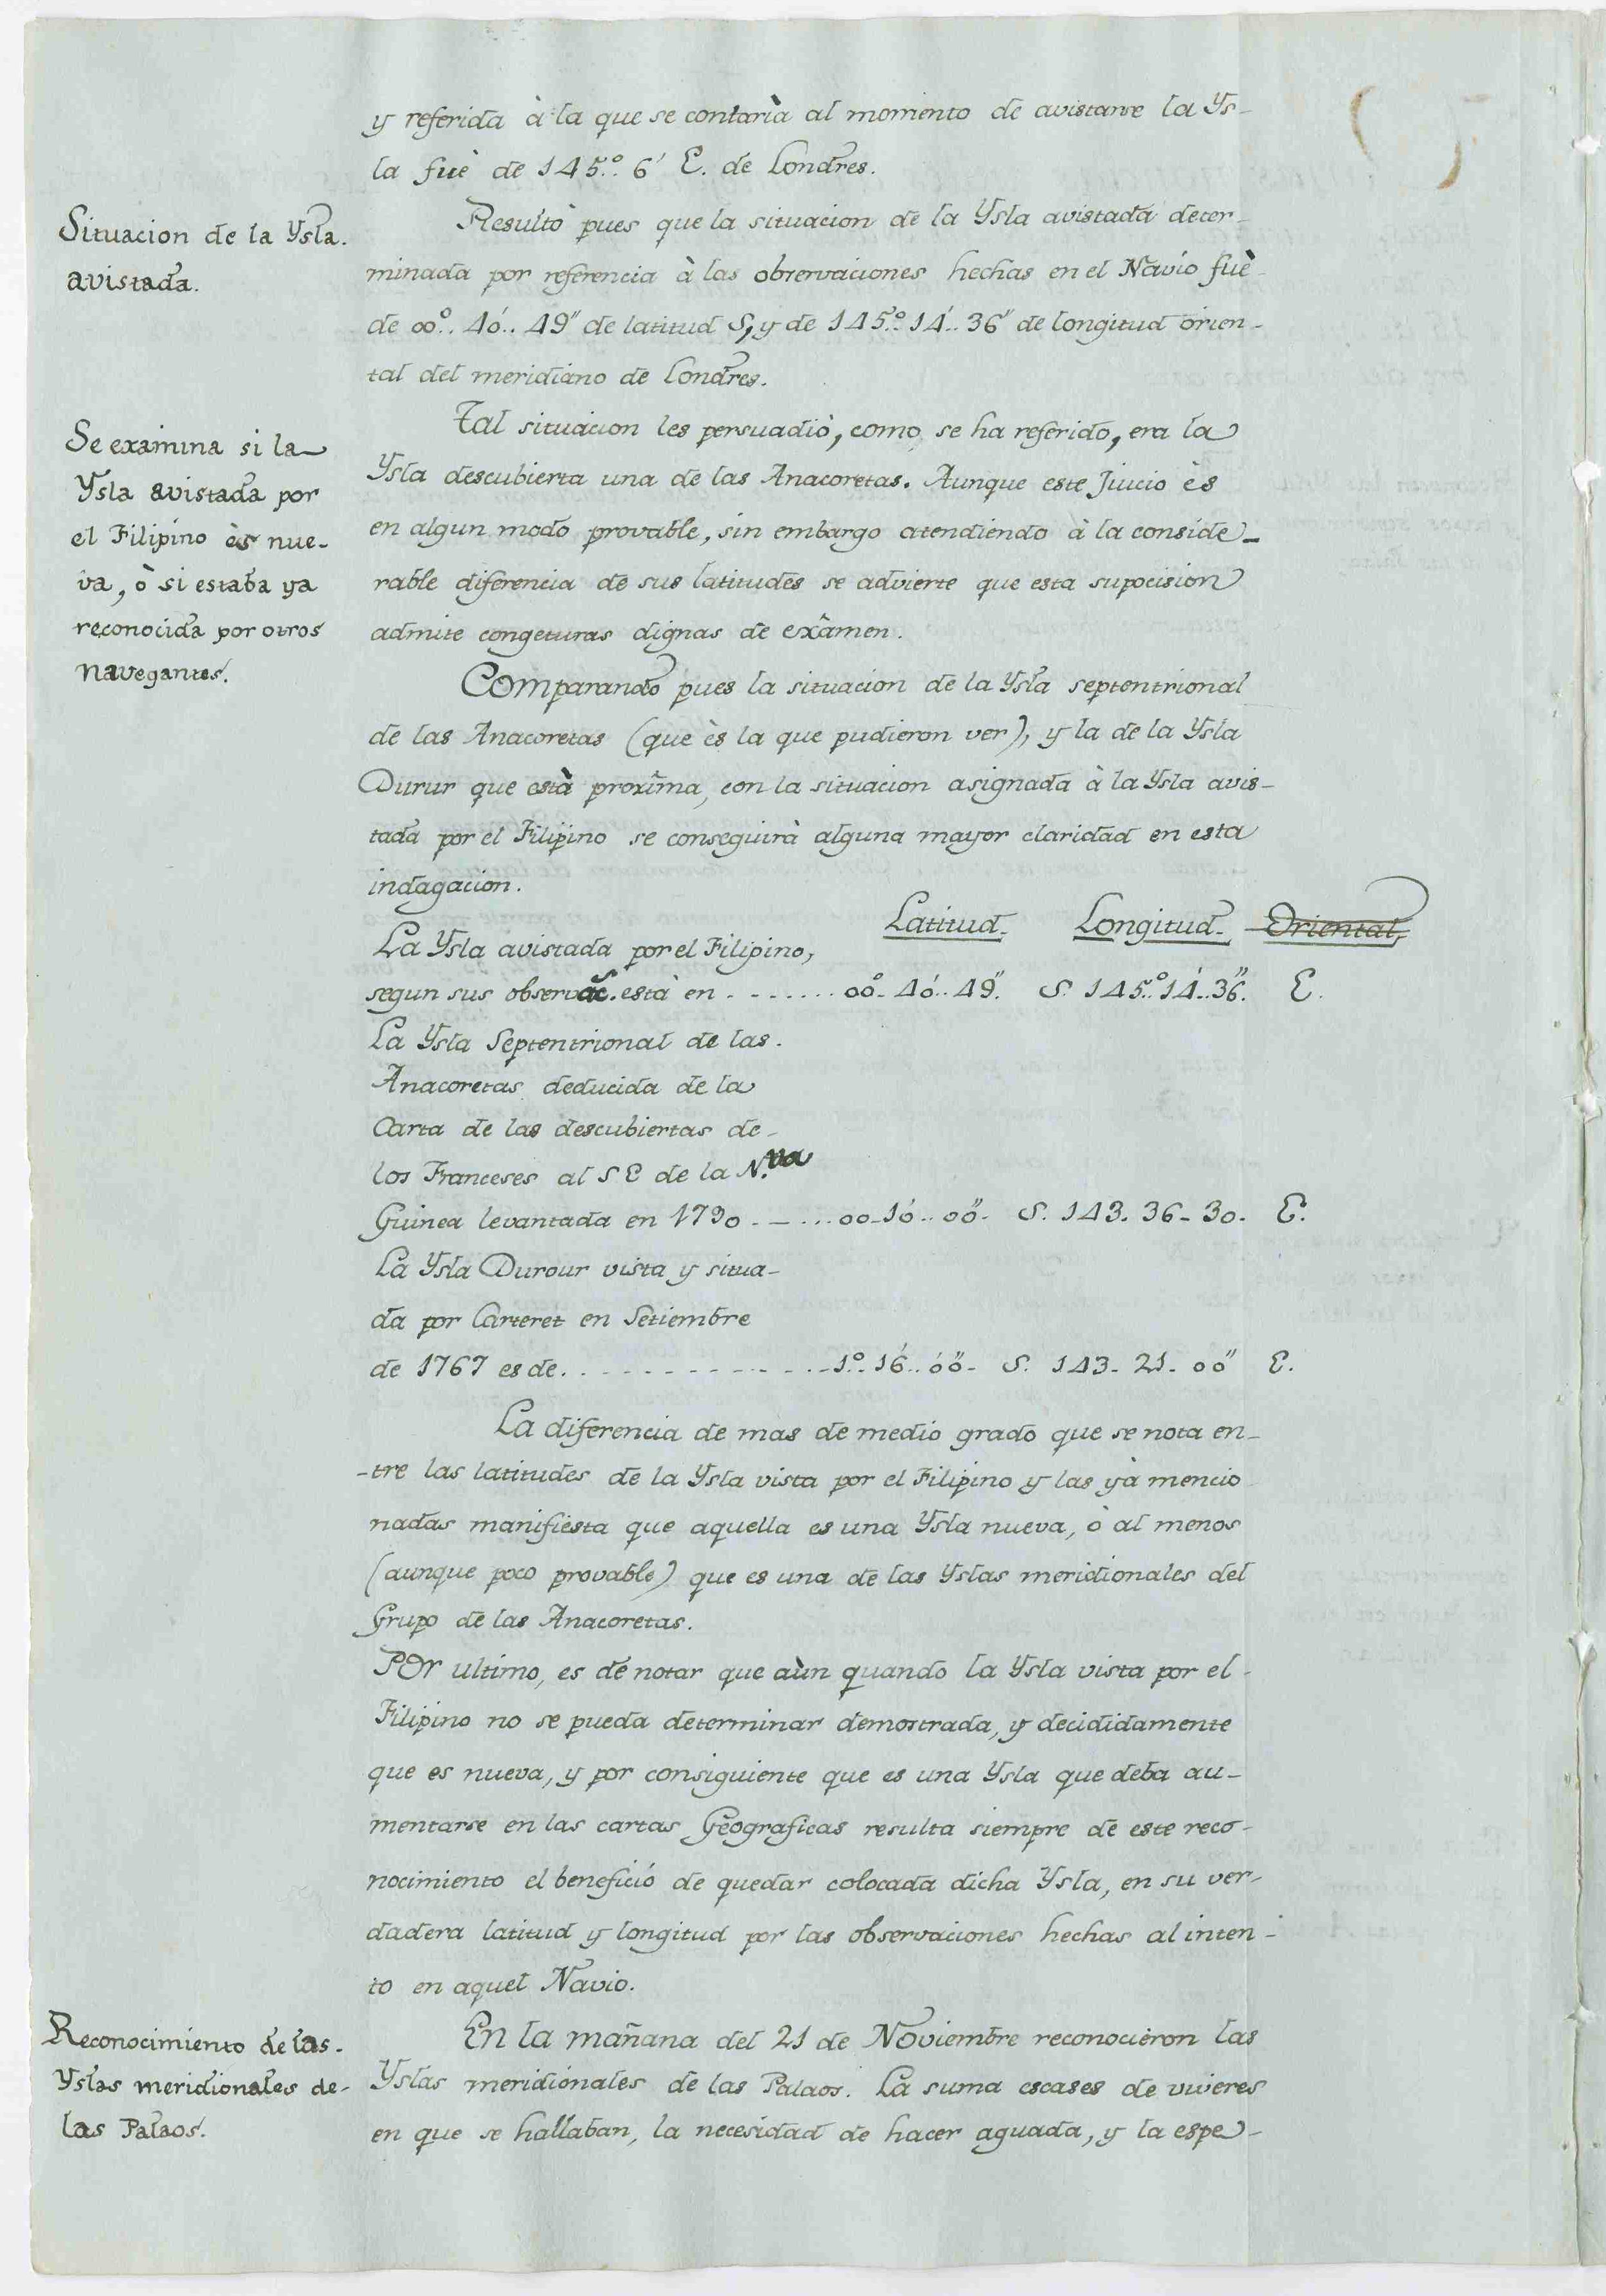 y referida à la que se contarìa al momento de avistarse la Ys-
la fuè de 145.º 6' E. de Londres.
Situacion de la Ysla.
avistada.
Resultò pues que la situacion de la Ysla avistada deter-
minada por referencia à las observaciones hechas en el Navío fuè
de 00º.. 40'.. 49" de latitud S, y de 145.º 14'.. 36" de longitud orien-
tal del meridiano de Londres.
Se exâmina si la
Ysla avistada por
el Filipino ès nue-
va, ò si estaba ya
reconocida por otros
navegantes.
Tal situacion les persuadiò, como se ha referido, era la
Ysla descubierta una de las Anacoretas. Aunque este Juicio ès
en algun modo provable, sin embargo atendiendo à la conside-
rable diferencia de sus latitudes se advierte que esta supocision
admite congeturas dignas de exâmen.
Comparando pues la situacion de la Ysla septentrional
de las Anacoretas (que ès la que pudieron ver), y la de la Ysla
Durur que està proxîma, con la situacion asignada à la Ysla avis-
tada por el Filipino se conseguirà alguna mayor claridad en esta
indagacion.
Latitud. Longitud. Oriental,
La Ysla avistada por el Filipino,
segun sus observac.s està en . - - . . . . . 00º- 40'.. 49". S. 145.º 14'.. 36". E.
La Ysla Septentrional de las.
Anacoretas deducida de la
Carta de las descubiertas de-
los Franceses al S E de la N.va
Guinea levantada en 1790 . - . . . 00-10'.. 00"- S. 143. 36- 30. E.
La Ysla Durour vista y situa-
da por Carteret en Setiembre
de 1767 es de. . . - - - - - - - - . -1.º- 16'.. 00"- S. 143- 21- 00" E.
La diferencia de mas de medio grado que se nota en-
-tre las latitudes de la Ysla vista por el Filipino y las yà mencio
nadas manifiesta que aquella es una Ysla nueva, ò al menos
(aunque poco provable) que es una de las Yslas meridionales del
Grupo de las Anacoretas.
Por ultimo, es de notar que aùn quando la Ysla vista por el-
Filipino no se pueda determinar demostrada, y decididamente
que es nueva, y por consiguiente que es una Ysla que deba au-
mentarse en las cartas Geograficas resulta siempre de este reco-
nocimiento el beneficio de quedar colocada dicha Ysla, en su ver-
dadera latitud y longitud por las observaciones hechas al inten-
to en aquel Navio.
Reconocimiento de las-
Yslas meridionales de-
las Palaos.
En la mañana del 21 de Noviembre reconocieron las
Yslas meridionales de las Palaos. La suma escases de viveres
en que se hallaban, la necesidad de hacer aguada, y la espe-